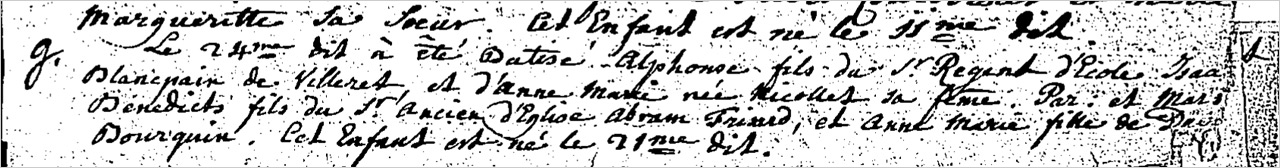 Margueritte sa Soeur. Cet Enfant est né le 11me dit.
9. Le 24me dit à été Batisé Alphonse fils du Sr Regent d'Ecole Isaa
Blancpain de Villeret, et d'Anne Marie née Nicollet sa feme. Par: et Mars
Bénédicts fils du Sr Ancien d'Eglise Abram, et Anne Marie fille de
Bourquin. Cet Enfant est né le 21me dit.